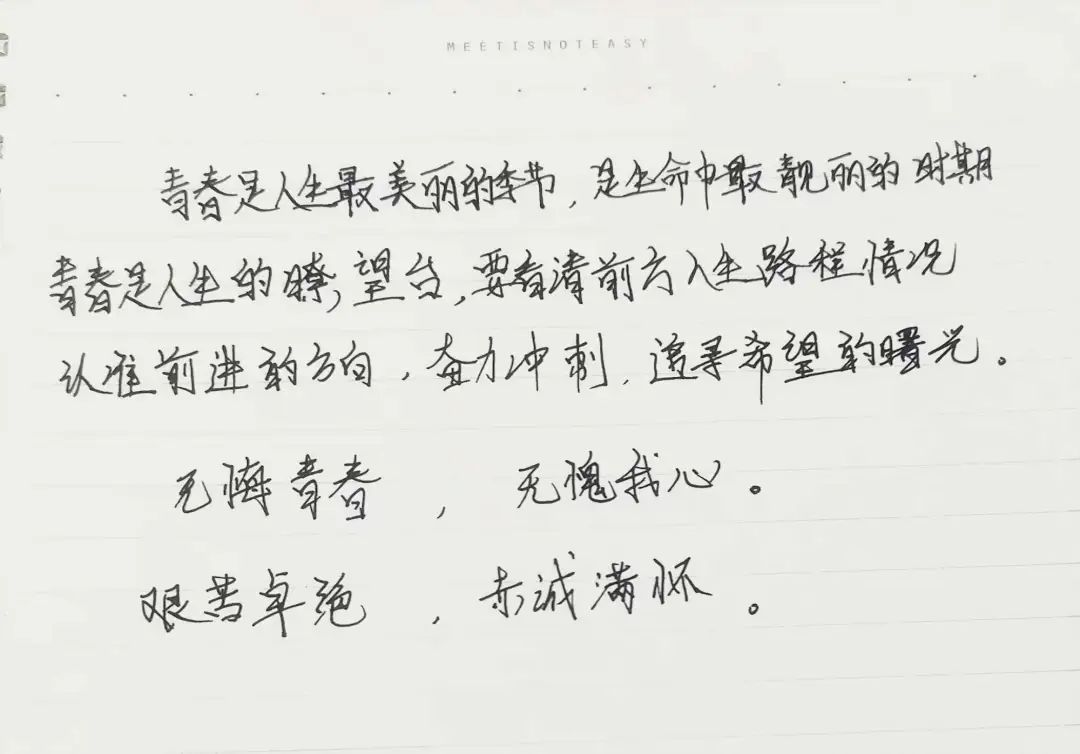 MEETISNOTEASY
青春是人生最美丽的季节,是生命中最靓丽的时期
青春是人生的瞭望台,要看清前方人生路程情况
认准前进的方向,奋力冲刺,追寻希望的曙光。
无悔青春,无愧我心。
艰苦卓绝,赤诚满怀。